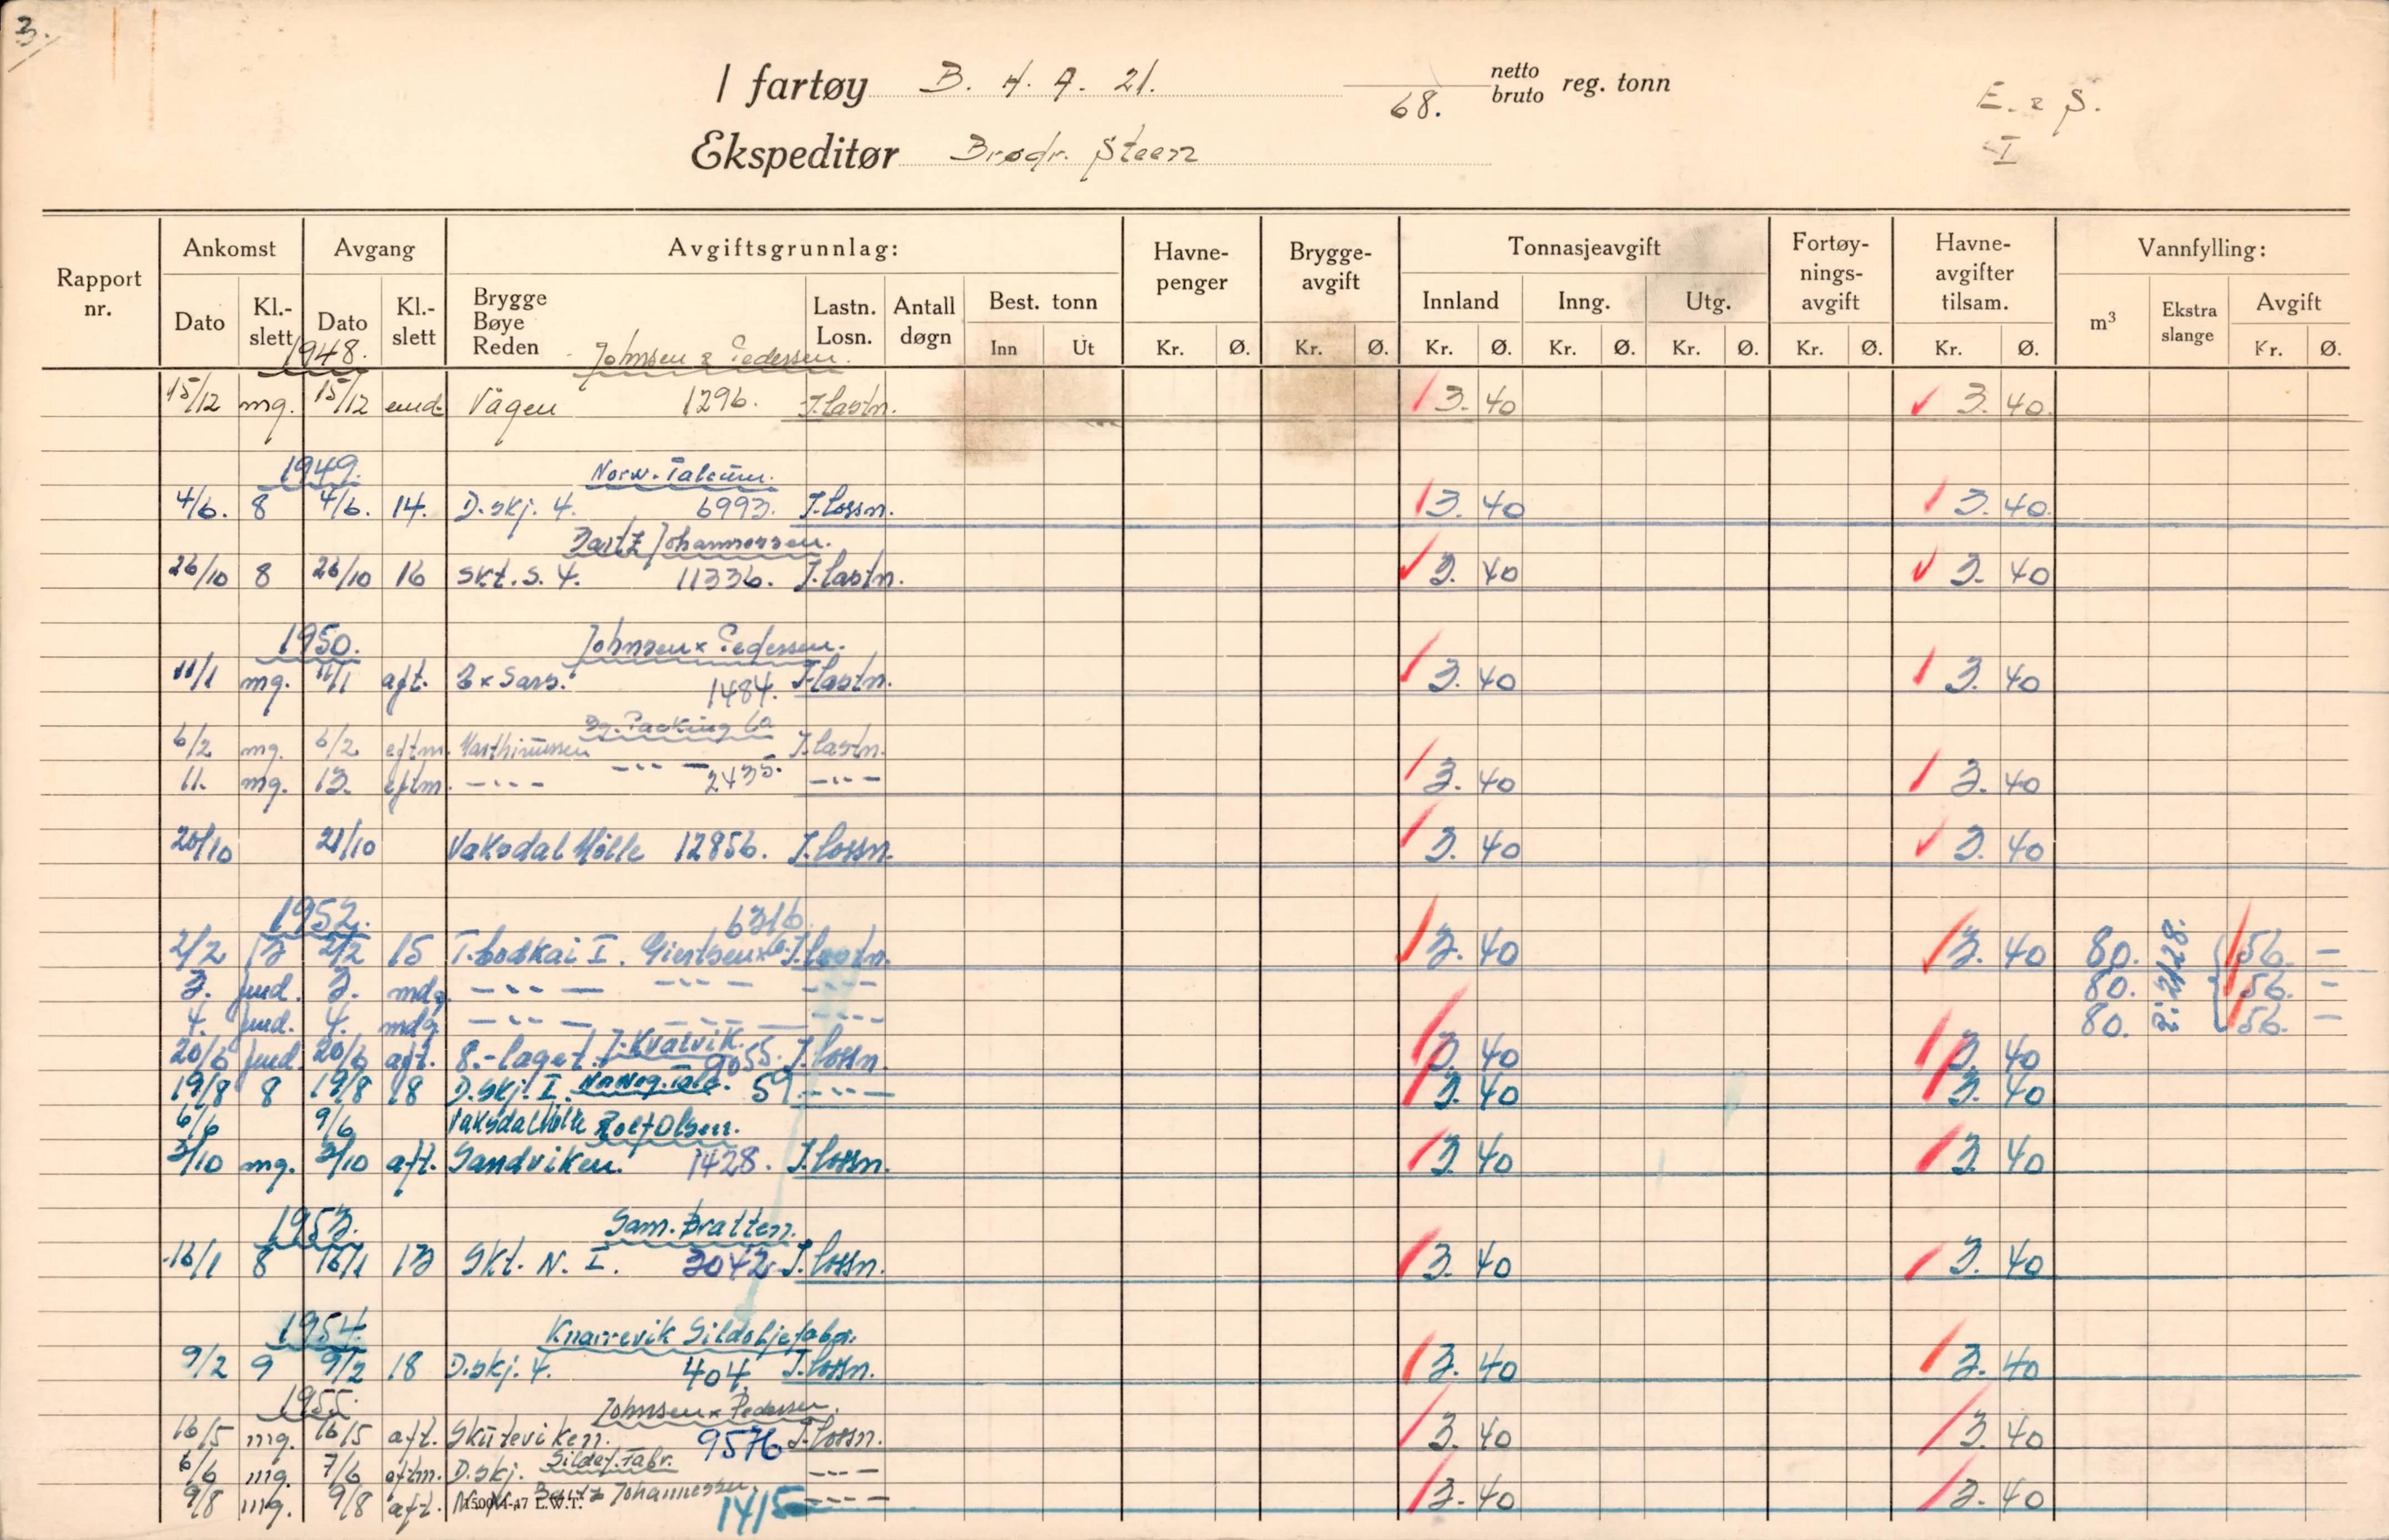 3.
I fartøy B. H. A. 21. 68. netto bruto reg. tonn
E. & S.
I
Ekspeditør Brødr. Steen
Rapport nr. Ankomst Avgang Avgiftsgrunnlag: Havne-penger Brygge-avgift Tonnasjeavgift Fortøy-nings-avgift Havne-avgifter tilsam. Vannfylling:
Dato Kl.-slett Dato Kl.-slett Brygge Bøye Reden Lastn. Losn. Antall døgn Best. tonn Innland Inng. Utg. m³ Ekstra slange Avgift
Inn Út Kr. Ø. Kr. Ø. Kr. Ø. Kr. Ø. Kr. Ø. Kr. Ø. Kr. Ø. Kr. Ø.
1948. Johnsen & Pedersen.
15/12 mg. 15/12 emd. Vågen 1296. I.lastn. 3. 40 3. 40.
1949. Norw. Talcum.
4/6. 8 4/6. 14. D.skj. 4. 6993. I.lossn. 3. 40 3. 40.
Bartz Johannessen.
26/10 8 26/10 16 Skt. S. 4. 11336. I.lastn. 3. 40 3. 40
1950. Johnsen x Pedersen.
11/1 mg. 11/1 aft. 1484. I.lastn. 3. 40 3. 40
Bg. Packing Co
6/2 mg. 6/2 eftm. I.lastn.
11. mg. 13. eftm. -"- -"- 2435. -"- 3. 40 3. 40
20/10 21/10 Vaksdal Mölle 12856. I.lossn. 3. 40 3. 40
1952. 6316.
2/2 13 2/2 15 T.bodkai I. Giertsen x Co. I.lastn. 3. 40 3. 40 80. 56. -
3. fmd. 3. mdg. -"- -"- -"- 80. 56. -
4. fmd. 4. mdg. -"- -"- -"- 80. 56. -
20/6 fmd. 20/6 aft. S.-laget. J. Kvalvik. 9055. I.lossn. 3. 40 3. 40
19/8 8 19/8 18 D.skj. I. Norweg. Talc. 59. -"- 3. 40 3. 40
6/6 9/6 Vaksdal Mölle Rolf Olsen.
3/10 mg. 3/10 aft. Sandviken. 1428. I.lossn. 3. 40 3. 40
1953. Sam. Bratten.
16/1 8 16/1 13 Skt. N. I. 3042 I.lossn. 3. 40 3. 40
1954. Knarrevik Sildoljefabr.
9/2 9 9/2 18 D.skj. 4. 404 I.lossn. 3. 40 3. 40
1955. Johnsen x Pedersen.
16/5 mg. 16/5 aft. Skuteviken. 9576 I.lossn. 3. 40 3. 40
6/6 mg. 7/6 eftm. D.skj. Sildef. Fabr. -"-
9/8 mg. 9/8 aft. Bartz Johannessen. 1415 -"- 3. 40 3. 40